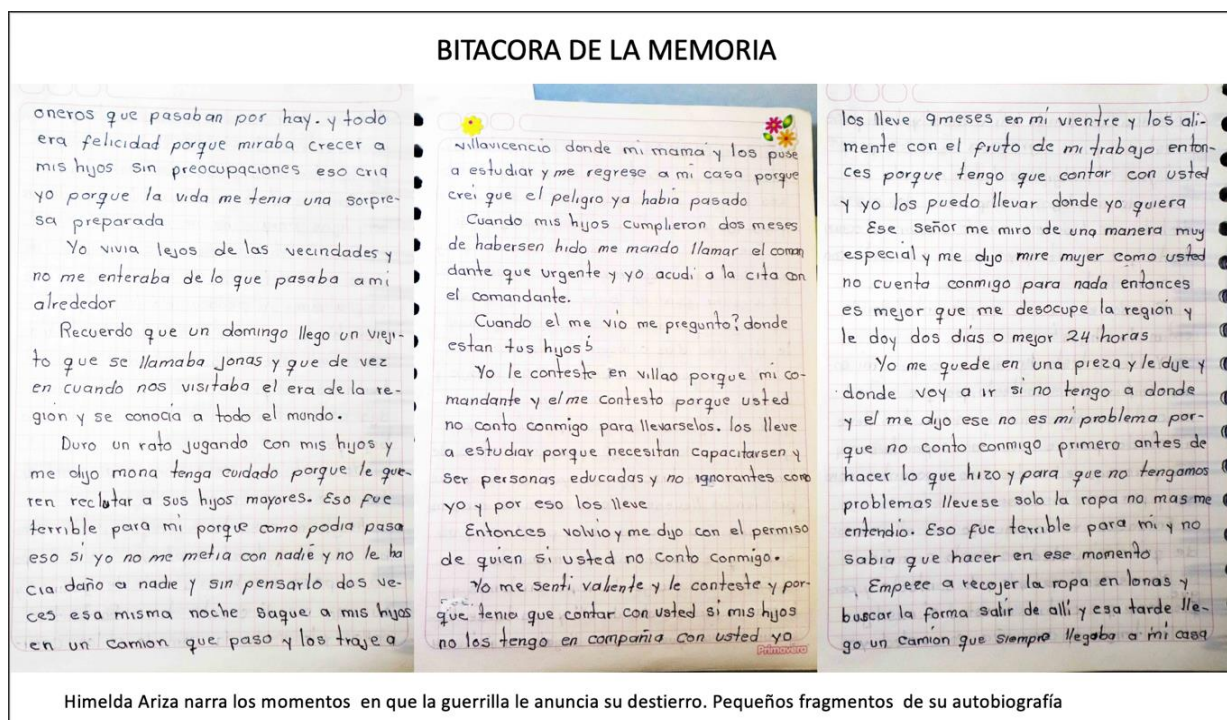 BITACORA DE LA MEMORIA
oneros que pasaban por hay. y todo
era felicidad porque miraba crecer a
mis hijos sin preocupaciones eso cria
yo porque la vida me tenia una sorpre-
sa preparada
Yo vivia lejos de las vecindades y
no me enteraba de lo que pasaba a mi
alrededor
Recuerdo que un domingo llego un vieji-
to que se llamaba Jonas y que de vez
en cuando nos visitaba el era de la re-
gion y se conocia a todo el mundo.
Duro un rato jugando con mis hijos y
me dijo mona tenga cuidado porque le que-
ren reclutar a sus hijos mayores. Eso fue
terrible para mi porque como podia pasa
eso si yo no me metia con nadie y no le ha
cia daño a nadie y sin pensarlo dos ve-
ces esa misma noche saque a mis hijos
en un camion que paso y los traje a
villavicencio donde mi mama y los puse
a estudiar y me regrese a mi casa porque
crei que el peligro ya habia pasado
Cuando mis hijos cumplieron dos meses
de habersen hido me mando llamar el coman
dante que urgente y yo acudi a la cita con
el comandante.
Cuando el me vio me pregunto? donde
estan tus hijos?
Yo le conteste en villao porque mi co-
mandante y el me contesto porque usted
no conto conmigo para llevarselos. los lleve
a estudiar porque necesitan capacitarsen y
ser personas educadas y no ignorantes como
yo y por eso los lleve
Entonces volvio y me dijo con el permiso
de quien si usted no conto conmigo.
Yo me senti valiente y le conteste y por-
que tenia que contar con usted si mis hijos
no los tengo en compañia con usted yo
Primavera
los lleve 9 meses en mi vientre y los ali-
mente con el fruto de mi trabajo enton-
ces porque tengo que contar con usted
y yo los puedo llevar donde yo quiera
Ese señor me miro de una manera muy
especial y me dijo mire mujer como usted
no cuenta conmigo para nada entonces
es mejor que me desocupe la region y
le doy dos dias o mejor 24 horas
Yo me quede en una pieza y le dije y
donde voy a ir si no tengo a donde
y el me dijo ese no es mi problema por-
que no conto conmigo primero antes de
hacer lo que hizo y para que no tengamos
problemas llevese solo la ropa no mas me
entendio. Eso fue terrible para mi y no
sabia que hacer en ese momento
Empece a recojer la ropa en lonas y
buscar la forma salir de alli y esa tarde lle-
go un camion que siempre llegaba a mi casa
Himelda Ariza narra los momentos en que la guerrilla le anuncia su destierro. Pequeños fragmentos de su autobiografía